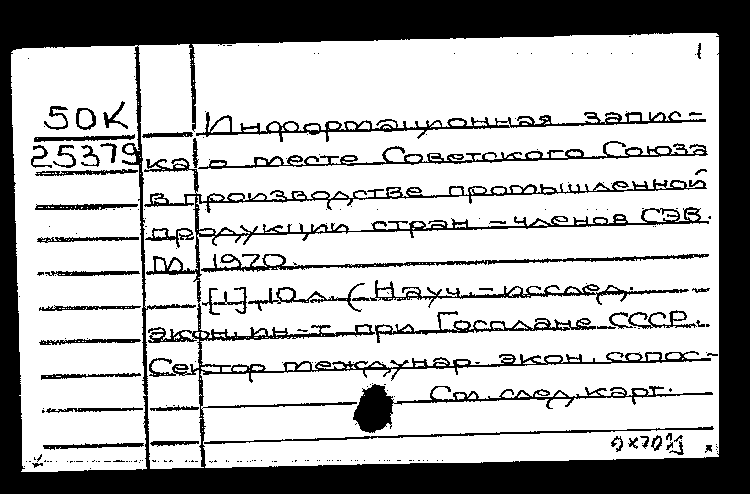 1
50К
Информационная запис-
25379
ка о месте Советского Союза
в производстве промышленной
продукции стран - членов СЭВ.
М. 1970.
[1], 10 л. (Науч.-исслед.
экон. ин-т при Госплане СССР.
Сектор междунар. экон. сопос-
См. след. карт.